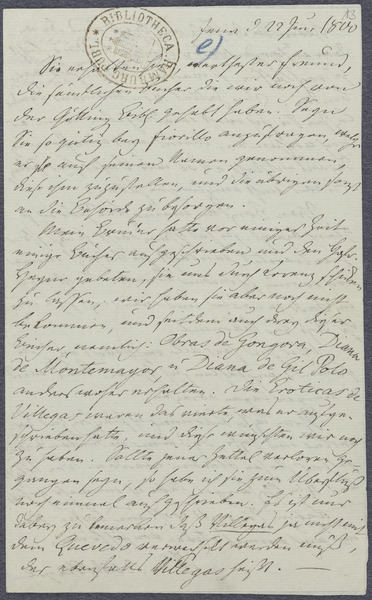 13
BIBLIOTHECA HAMBURG. PUBL.
Jena d 22 Jun. 1800
e)
Sie erhalten hier, werthester Freund,
die sämtlichen Bücher die wir noch von
der Götting. Bibl. gehabt haben. Seyn
Sie so gütig bey Fiorillo anzufragen, welche
er auf seinen Namen genommen,
diese ihm zuzustellen, und die übrigen sonst
an die Behörde zu besorgen.
Mein Bruder hatte vor einiger Zeit
einige Bücher aufgeschrieben und den
gebeten, sie uns durch Lorenz schicken
zu lassen, wir haben sie aber noch nicht
bekommen, und seitdem auch drey dieser
Bücher nemlich: Obras de Gongora, Diana
de Montemayor u Diana de Gil Polo
anderswoher erhalten. Die Eroticas de
Villegas waren das vierte, was er aufge-
schrieben hatte, und diese wünschten wir noch
zu haben. Sollte jener Zettel verloren ge-
gangen seyn, so habe ich sie zum Überfluß
noch einmal aufgeschrieben. Es ist nur
dabey zu bemerken daß Villegas ja nicht mit
dem Quevedo verwechselt werden muß,
der ebenfalls Villegas heißt. —